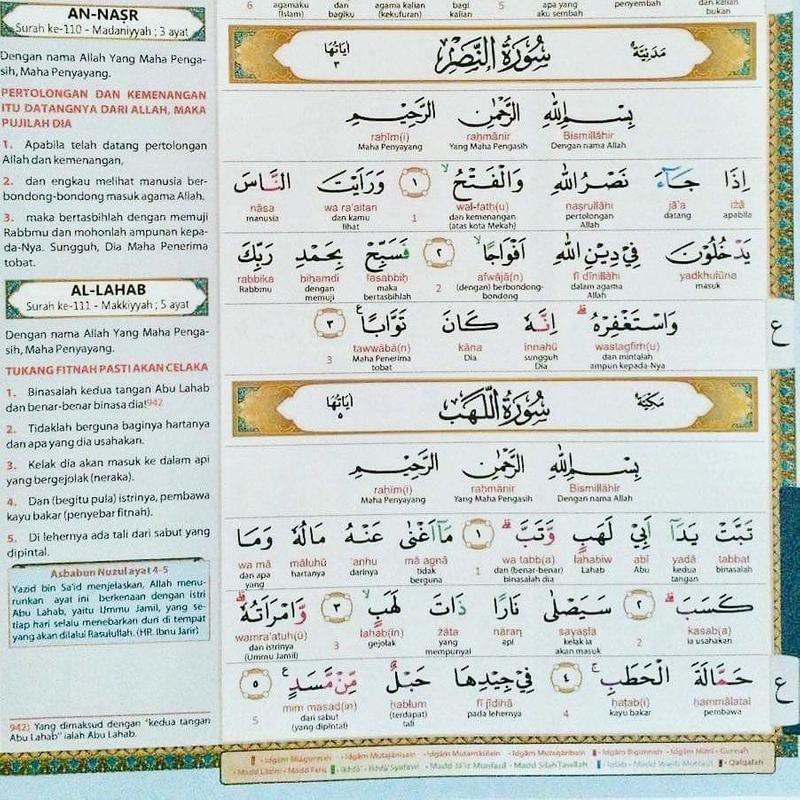 AN-NAṢR
Surah ke-110 - Madaniyyah ; 3 ayat
Dengan nama Allah Yang Maha Penga-
sih, Maha Penyayang.
PERTOLONGAN DAN KEMENANGAN
ITU DATANGNYA DARI ALLAH, MAKA
PUJILAH DIA
1. Apabila telah datang pertolongan
Allah dan kemenangan,
2. dan engkau melihat manusia ber-
bondong-bondong masuk agama Allah.
3. maka bertasbihlah dengan memuji
Rabbmu dan mohonlah ampunan kepa-
da-Nya. Sungguh, Dia Maha Penerima
tobat.
AL-LAHAB
Surah ke-111 - Makkiyyah ; 5 ayat
Dengan nama Allah Yang Maha Penga-
sih, Maha Penyayang.
TUKANG FITNAH PASTI AKAN CELAKA
1. Binasalah kedua tangan Abu Lahab
dan benar-benar binasa dia!942
2. Tidaklah berguna baginya hartanya
dan apa yang dia usahakan.
3. Kelak dia akan masuk ke dalam api
yang bergejolak (neraka).
4. Dan (begitu pula) istrinya, pembawa
kayu bakar (penyebar fitnah).
5. Di lehernya ada tali dari sabut yang
dipintal.
Asbabun Nuzul ayat 4-5
Yazid bin Sa'id menjelaskan, Allah menu-
runkan ayat ini berkenaan dengan istri
Abu Lahab, yaitu Ummu Jamil, yang se-
tiap hari selalu menebarkan duri di tempat
yang akan dilalui Rasulullah. (HR. Ibnu Jarir)
942) Yang dimaksud dengan "kedua tangan
Abu Lahab" ialah Abu Lahab.
6 agamaku bagiku agama kalian bagi 5 apa yang penyembah dan kalian
(Islam) dan (kekufuran) kalian aku sembah bukan
مَدَنِيَّة سُوْرَةُ النَّصْرِ اٰيَاتُهَا ٣
بِسْمِ اللّٰهِ الرَّحْمٰنِ الرَّحِيْمِ
Bismillāhir raḥmānir raḥīm(i)
Dengan nama Allah Yang Maha Pengasih Maha Penyayang
اِذَا جَاۤءَ نَصْرُ اللّٰهِ وَالْفَتْحُ ۙ ١ وَرَاَيْتَ النَّاسَ
iżā jā'a naṣrullāhi wal-fatḥ(u) 1 wa ra'aitan nāsa
apabila datang pertolongan dan kemenangan dan kamu manusia
Allah (atas kota Mekah) lihat
يَدْخُلُوْنَ فِيْ دِيْنِ اللّٰهِ اَفْوَاجًا ۙ ٢ فَسَبِّحْ بِحَمْدِ رَبِّكَ
yadkhulūna fī dīnillāhi afwājā(n) 2 fasabbiḥ biḥamdi rabbika
masuk dalam agama (dengan) berbondong- maka dengan Rabbmu
Allah bondong bertasbihlah memuji
وَاسْتَغْفِرْهُ ۗ اِنَّهٗ كَانَ تَوَّابًا ٣ ع
wastagfirh(u) innahū kāna tawwābā(n) 3
dan mintalah sungguh Dia Maha Penerima
ampun kepada-Nya Dia tobat
مَكِّيَّة سُوْرَةُ اللَّهَبِ اٰيَاتُهَا ٥
بِسْمِ اللّٰهِ الرَّحْمٰنِ الرَّحِيْمِ
Bismillāhir raḥmānir raḥīm(i)
Dengan nama Allah Yang Maha Pengasih Maha Penyayang
تَبَّتْ يَدَآ اَبِيْ لَهَبٍ وَّتَبَّ ۗ ١ مَآ اَغْنٰى عَنْهُ مَالُهٗ وَمَا
tabbat yadā abī lahabiw wa tabb(a) 1 mā agnā 'anhu māluhū wa mā
binasalah kedua Abu Lahab dan (benar-benar) tidak darinya hartanya dan apa
tangan binasalah dia berguna yang
كَسَبَ ۗ ٢ سَيَصْلٰى نَارًا ذَاتَ لَهَبٍ ۙ ٣ وَّامْرَاَتُهٗ ۗ
kasab(a) 2 sayaṣlā nāran żāta lahab(in) 3 wamra'atuh(ū)
ia usahakan kelak ia api yang gejolak dan istrinya
akan masuk mempunyai (Ummu Jamil)
حَمَّالَةَ الْحَطَبِ ۚ ٤ فِيْ جِيْدِهَا حَبْلٌ مِّنْ مَّسَدٍ ٥ ع
ḥammālatal ḥaṭab(i) 4 fī jīdihā ḥablum mim masad(in) 5
pembawa kayu bakar pada lehernya (terdapat) dari sabut
tali (yang dipintal)